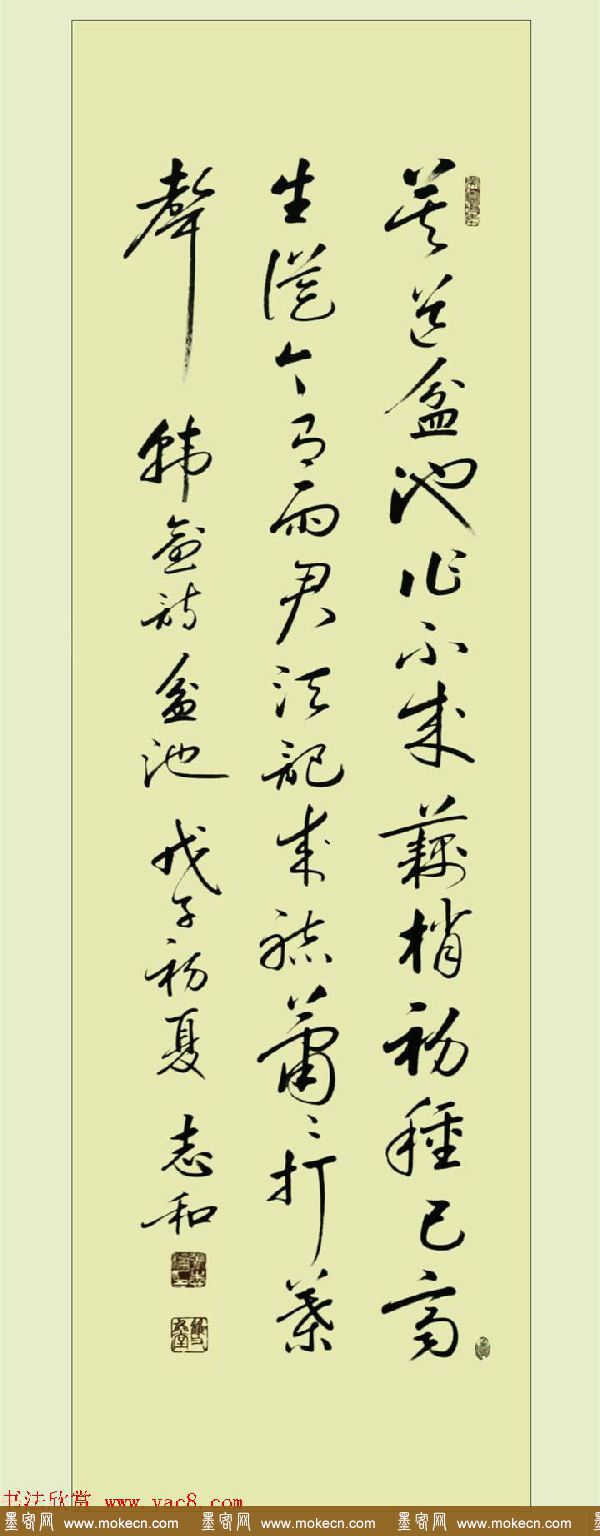 莫道盆池作不成藕梢初種已齊
生從今有雨君須記来聽蕭〻打葉
聲 韓愈詩盆池 戊子初夏 志和
书法欣赏 www.yac8.com
墨客网 www.mokecn.com 墨客网 www.mokecn.com 墨客网 www.mokecn.com